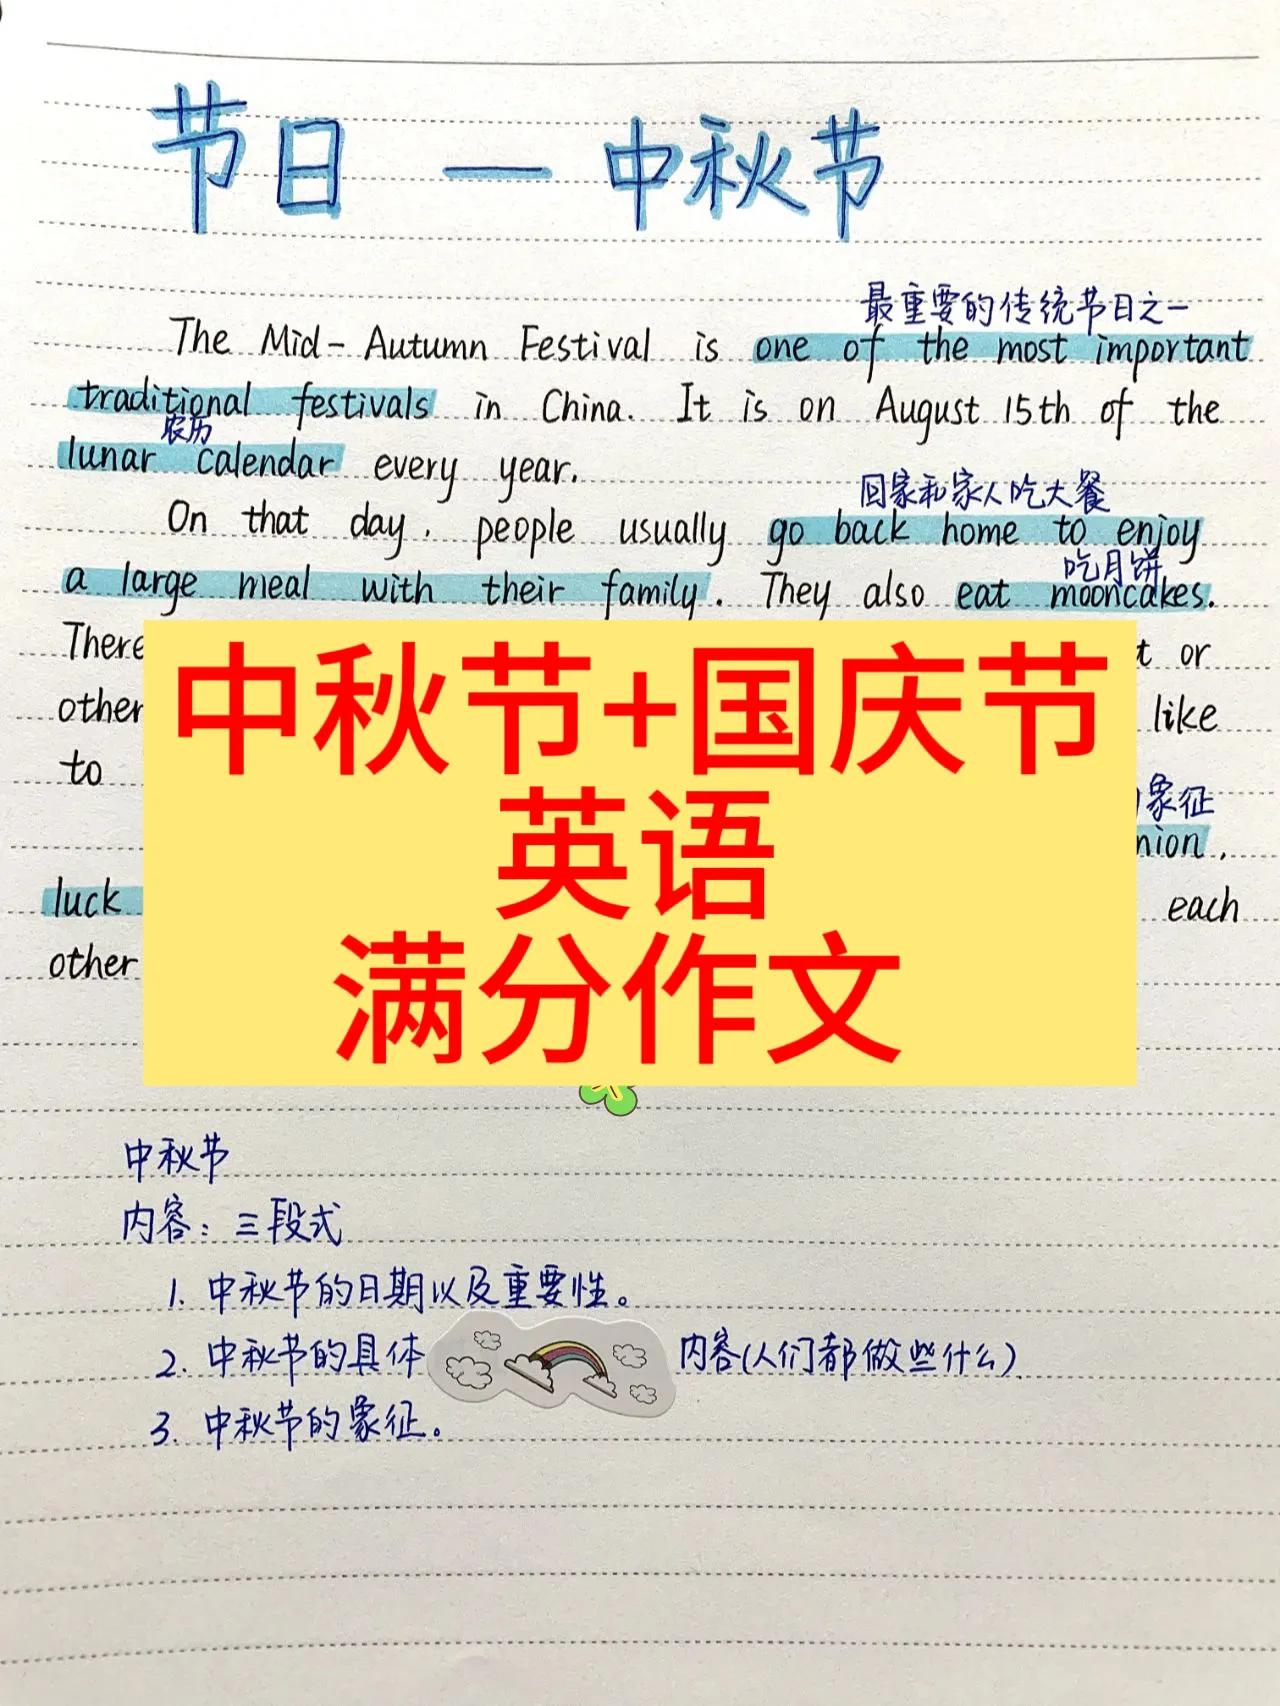 节日 — 中秋节
最重要的传统节日之一
The Mid-Autumn Festival is one of the most important
traditional festivals in China. It is on August 15th of the
农历
lunar calendar every year.
回家和家人吃大餐
On that day, people usually go back home to enjoy
a large meal with their family. They also eat mooncakes.
吃月饼
There or
other like
to
中秋节+国庆节
英语
满分作文
象征
luck each
other
中秋节
内容：三段式
1. 中秋节的日期以及重要性。
2. 中秋节的具体 内容(人们都做些什么)
3. 中秋节的象征。